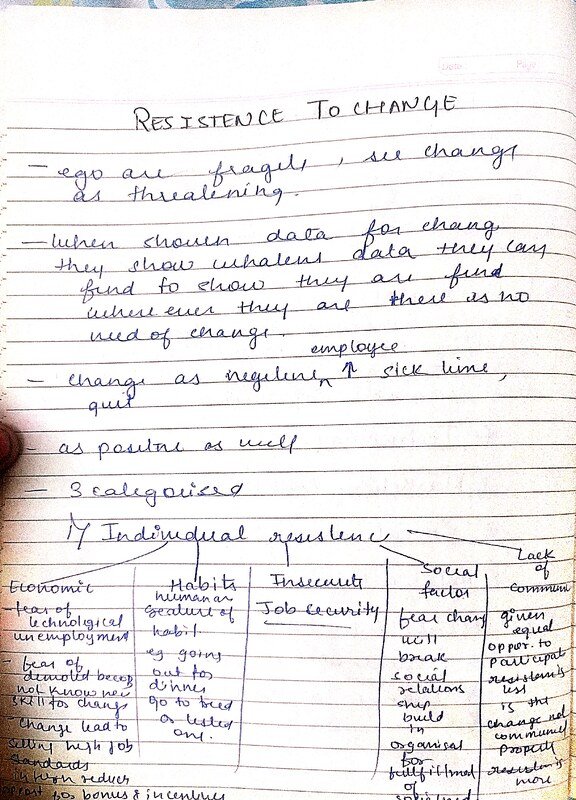 Date Page
RESISTENCE TO CHANGE
- ego are fragels, see change
as threatening.
- When shown data for change
they show whatever data they can
find to show they are find
where ever they are there is no
need of change.
employee
- change as negetive ^ ↑ sick time,
quit
- as positive as well
- 3 categorised
1) Individual resistence
Economic
- fear of
technological
unemployment
- fear of
not know new
skill for change
- change lead to
setting high job
standards
for bonus & incentives
Habits
human are
creature of
habit
eg going
out for
dinner
go to tried
or tested
one.
Insecurity
Job security
Social
factor
fear change
will
break
social
relations
ship
build
in
organisat
for
fullfillment
of
Lack
of
communi
given
equal
oppor. to
participat
resisten is
less
is the
change not
communi
properly
resisten is
more